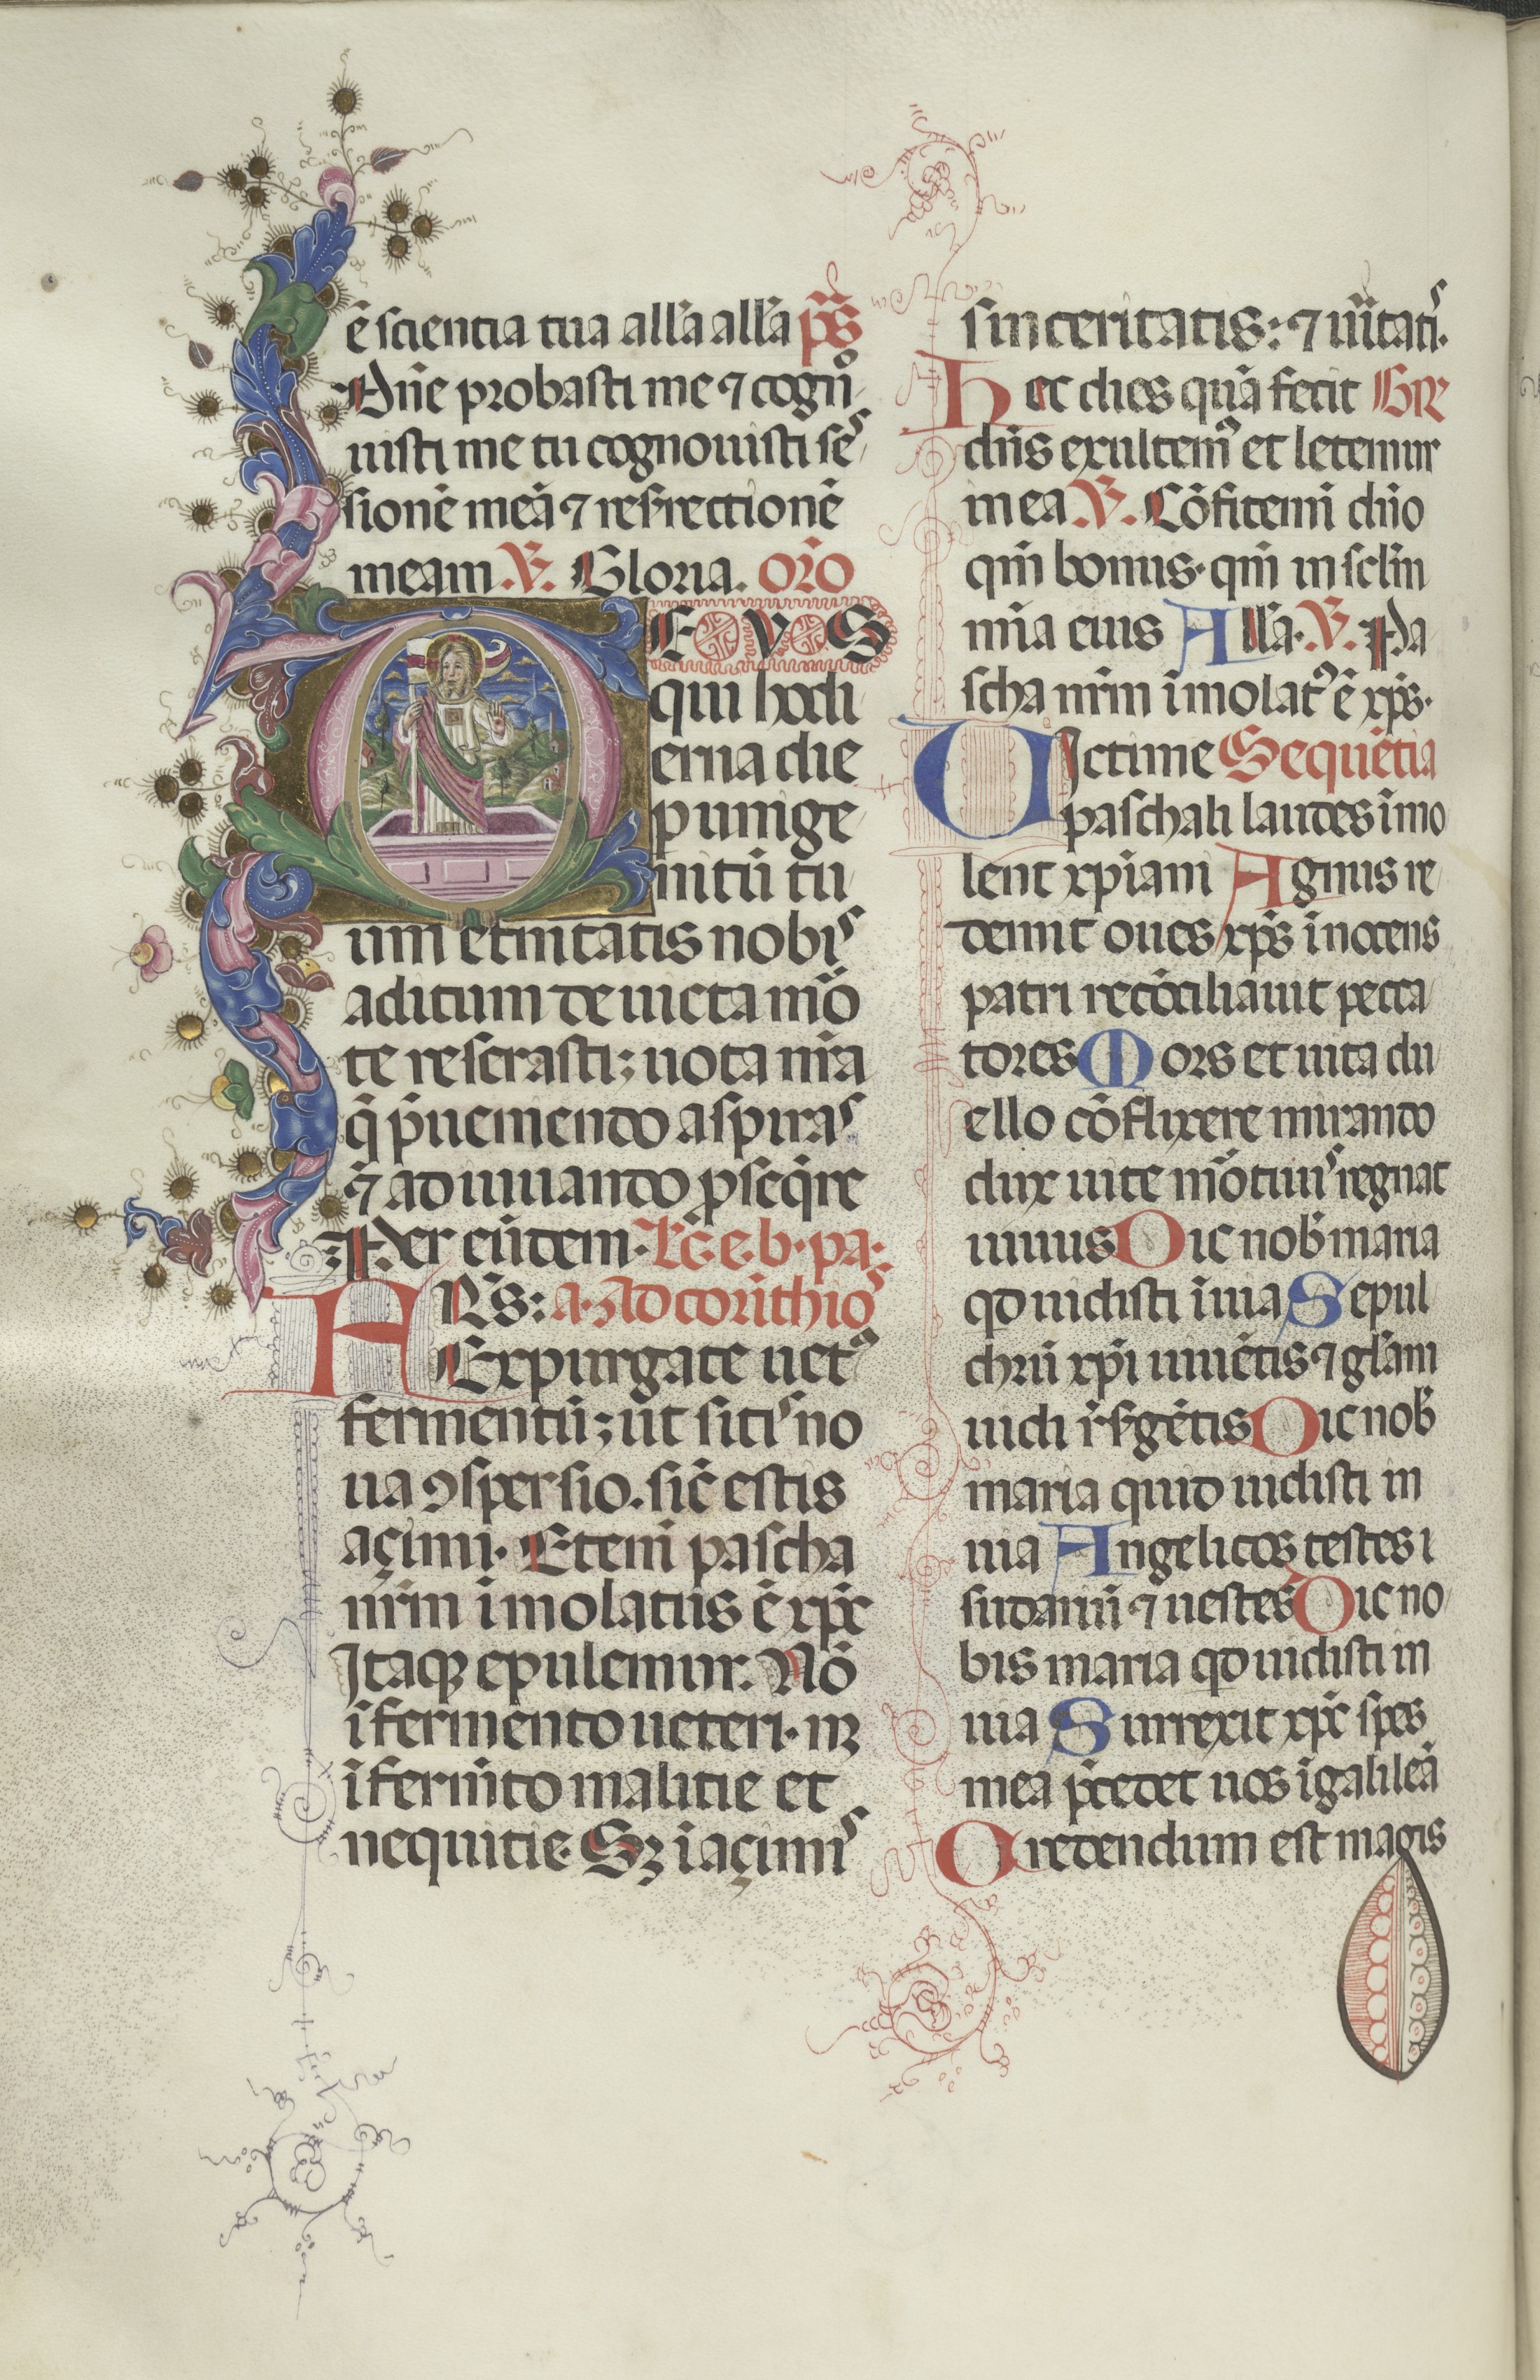 ē scientia tua all'a all'a p̄s
Dn̄e probasti me ⁊ cogno
uisti me tu cognouisti ses
sionē meā ⁊ resr̄rectionē
meam. V̄. Gloria. or̄o
DEVS
qui hodi
erna die
p unige
nitū tu
um et̄nitatis nobis
aditum deuicta mo᷑r
te reserasti; uota nr̄a
q̄ p̄ueniendo aspiras
⁊ adiuuando ꝑseq̄re
Per eūdem. Lc̄. e. b. pa.
FRS: a. ad corīthios
Expurgate uetꝰ
fermentū; ut sitis no
ua ꝯspersio. sic̄ estis
açimi. Eteni pascha
nr̄m imolatus ē xp̄c
Itaqꝫ epulemur. Nō
ī fermento ueteri. nꝫ
ī ferm̄to malitie et
nequitie. Sꝫ ī açimis
sinceritatis: ⁊ ūitatis.
Hec dies quā fecit GR̄
dn̄s exultemꝰ et letemur
in ea V̄. Cōfitemi dn̄o
qm̄ bonus. qm̄ in sclm̄
mīa eius All'a. V̄. Pa
scha nr̄m īmolatꝰ ē xp̄s.
VIctime Sequētia
paschali laudes īmo
lent xp̄iani Agnus re
demit oues xp̄s īnocens
patri recōciliauit pecca
tores Mors et uita du
ello cōflixere mirando
dux uite mo᷑tuus regnat
uiuus Dic nob̄ maria
qd uidisti ī uia Sepul
chrū xp̄i uiuētis ⁊ gl'am
uidi r̄sr̄gētis Dic nob̄
maria quid uidisti in
uia Angelicos testes ⁊
sudariū ⁊ uestes Dic no
bis maria qd uidisti in
uia Surrexit xp̄c spes
mea p̄cedet uos ī galileā
Credendum est magis